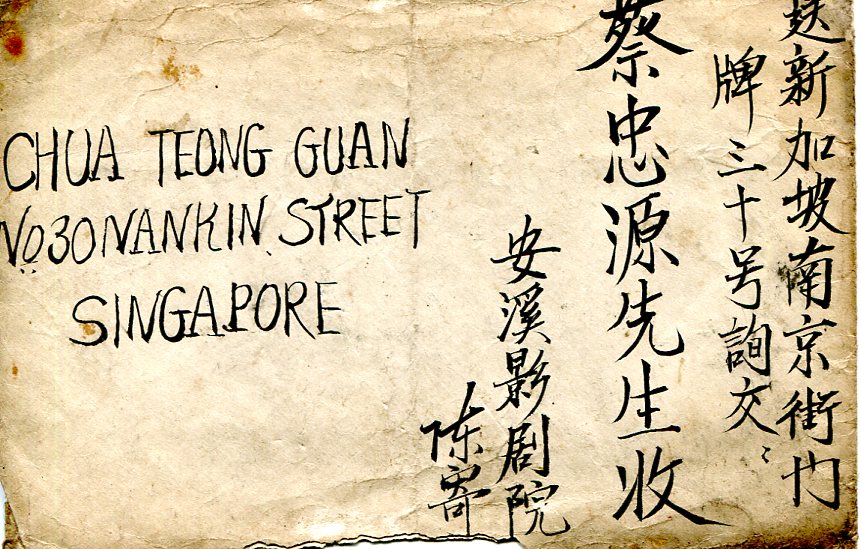 送新加坡南京街门
牌三十号詢交:
蔡忠源先生收
安溪影剧院
陈寄
CHUA TEONG GUAN
No30NANKIN STREET
SINGAPORE